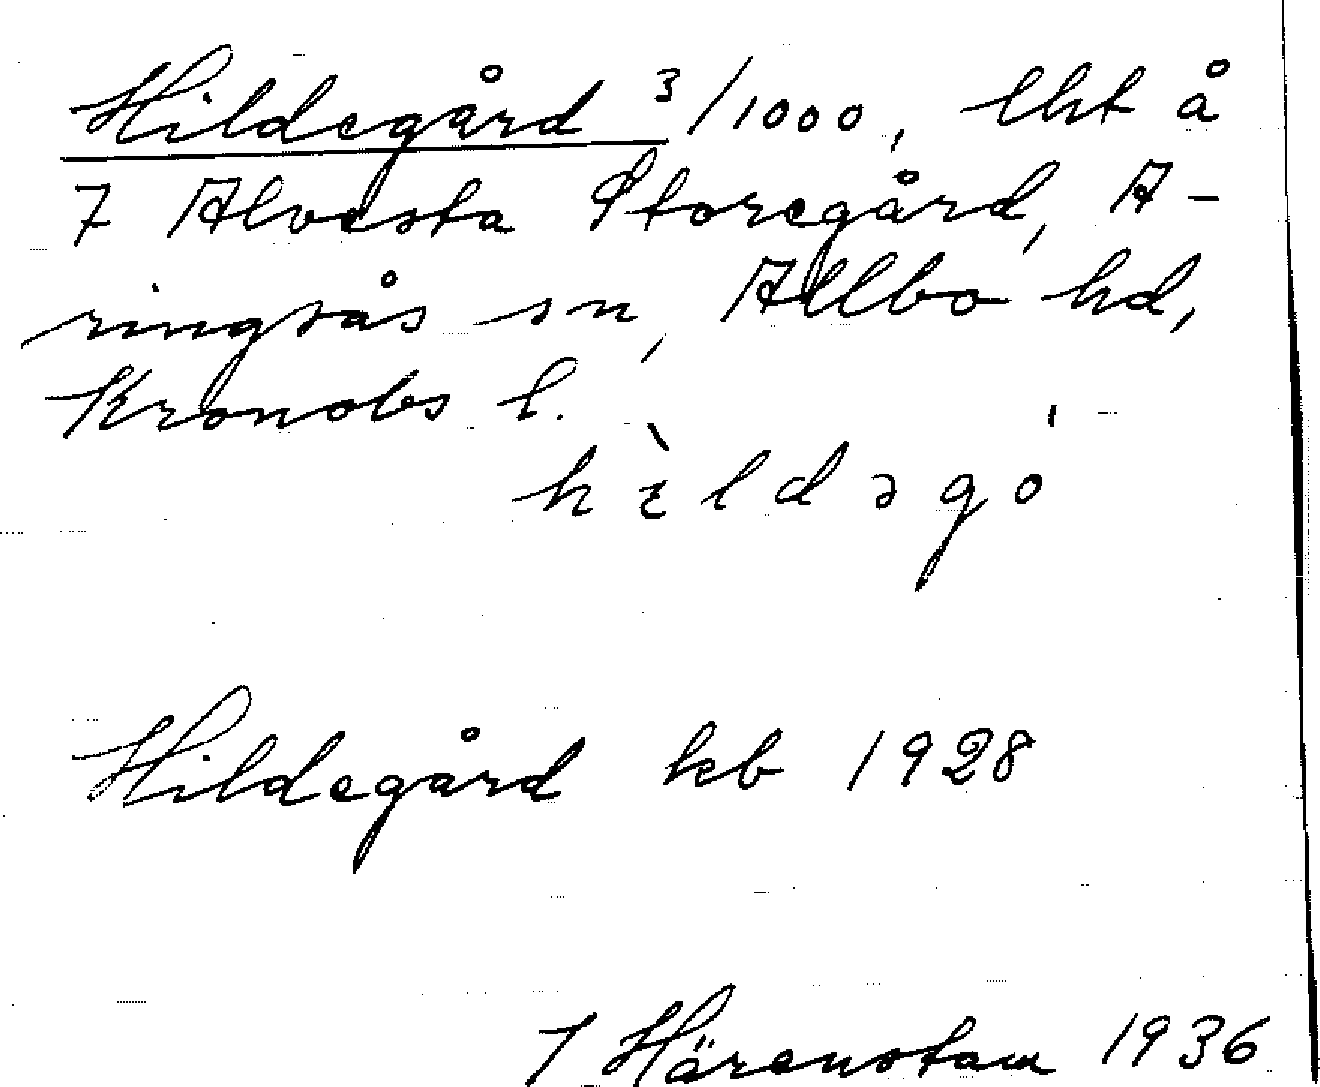 Hildegård 3/1000, lht å
7 Alvesta Storegård, A-
ringsås sn, Allbo hd,
Kronobs l.
hìldəgo'
Hildegård kb 1928
J Härenstam 1936